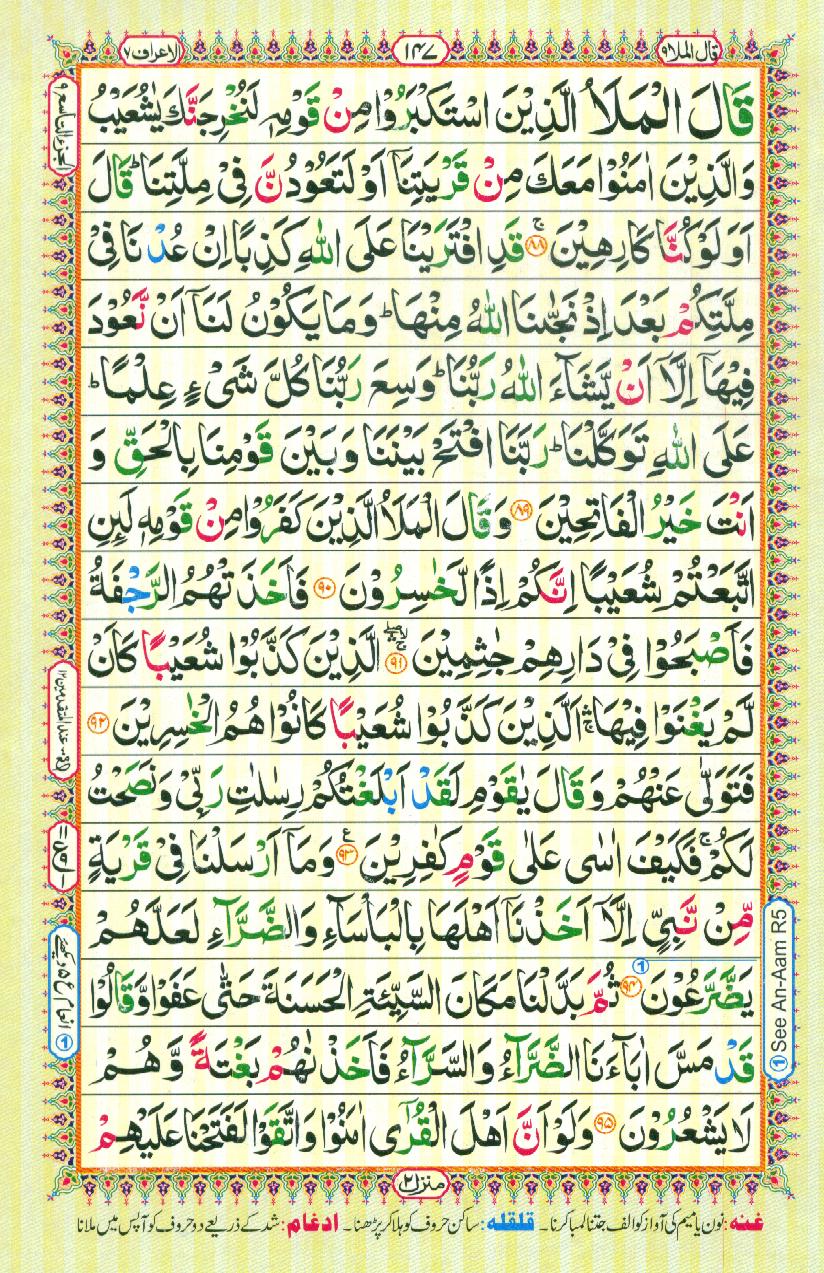 قال الملا ۹
۱۴۷
الاعراف ۷
قَالَ الْمَلَاُ الَّذِيْنَ اسْتَكْبَرُوْا مِنْ قَوْمِهٖ لَنُخْرِجَنَّكَ يٰشُعَيْبُ
وَالَّذِيْنَ اٰمَنُوْا مَعَكَ مِنْ قَرْيَتِنَاۤ اَوْ لَتَعُوْدُنَّ فِىْ مِلَّتِنَا ؕ قَالَ
اَوَلَوْ كُنَّا كَارِهِيْنَ ۚ‏﴿۸۸﴾ قَدِ افْتَرَيْنَا عَلَى اللّٰهِ كَذِبًا اِنْ عُدْنَا فِىْ
مِلَّتِكُمْ بَعْدَ اِذْ نَجّٰٮنَا اللّٰهُ مِنْهَا ؕ وَمَا يَكُوْنُ لَنَاۤ اَنْ نَّعُوْدَ
فِيْهَاۤ اِلَّاۤ اَنْ يَّشَآءَ اللّٰهُ رَبُّنَا ؕ وَسِعَ رَبُّنَا كُلَّ شَىْءٍ عِلْمًا ؕ
عَلَى اللّٰهِ تَوَكَّلْنَا ؕ رَبَّنَا افْتَحْ بَيْنَنَا وَبَيْنَ قَوْمِنَا بِالْحَقِّ وَ
اَنْتَ خَيْرُ الْفَاتِحِيْنَ ﴿۸۹﴾ وَقَالَ الْمَلَاُ الَّذِيْنَ كَفَرُوْا مِنْ قَوْمِهٖ لَئِنِ
اتَّبَعْتُمْ شُعَيْبًا اِنَّكُمْ اِذًا لَّخٰسِرُوْنَ ﴿۹۰﴾ فَاَخَذَتْهُمُ الرَّجْفَةُ
فَاَصْبَحُوْا فِىْ دَارِهِمْ جٰثِمِيْنَ ﴿۹۱﴾ الَّذِيْنَ كَذَّبُوْا شُعَيْبًا كَاَنْ
لَّمْ يَغْنَوْا فِيْهَا ۛۚ اَلَّذِيْنَ كَذَّبُوْا شُعَيْبًا كَانُوْا هُمُ الْخٰسِرِيْنَ ﴿۹۲﴾
فَتَوَلّٰى عَنْهُمْ وَقَالَ يٰقَوْمِ لَقَدْ اَبْلَغْتُكُمْ رِسٰلٰتِ رَبِّىْ وَنَصَحْتُ
لَكُمْ ۚ فَكَيْفَ اٰسٰى عَلٰى قَوْمٍ كٰفِرِيْنَ ﴿۹۳﴾ وَمَاۤ اَرْسَلْنَا فِىْ قَرْيَةٍ
مِّنْ نَّبِىٍّ اِلَّاۤ اَخَذْنَاۤ اَهْلَهَا بِالْبَاْسَآءِ وَالضَّرَّآءِ لَعَلَّهُمْ
يَضَّرَّعُوْنَ ﴿۹۴﴾ ① ثُمَّ بَدَّلْنَا مَكَانَ السَّيِّئَةِ الْحَسَنَةَ حَتّٰى عَفَوْا وَّقَالُوْا
قَدْ مَسَّ اٰبَآءَنَا الضَّرَّآءُ وَالسَّرَّآءُ فَاَخَذْنٰهُمْ بَغْتَةً وَّهُمْ
لَا يَشْعُرُوْنَ ﴿۹۵﴾ وَلَوْ اَنَّ اَهْلَ الْقُرٰٓى اٰمَنُوْا وَاتَّقَوْا لَفَتَحْنَا عَلَيْهِمْ
الجزء التاسع ۹
① انعام ع ۵ دیکھئے
① See An-Aam R5
منزل ۲
غنه: نون یا میم کی آواز کو الف جتنا لمبا کرنا۔ قلقله: ساکن حروف کو ہلا کر پڑھنا۔ ادغام: شد کے ذریعے دو حروف کو آپس میں ملانا